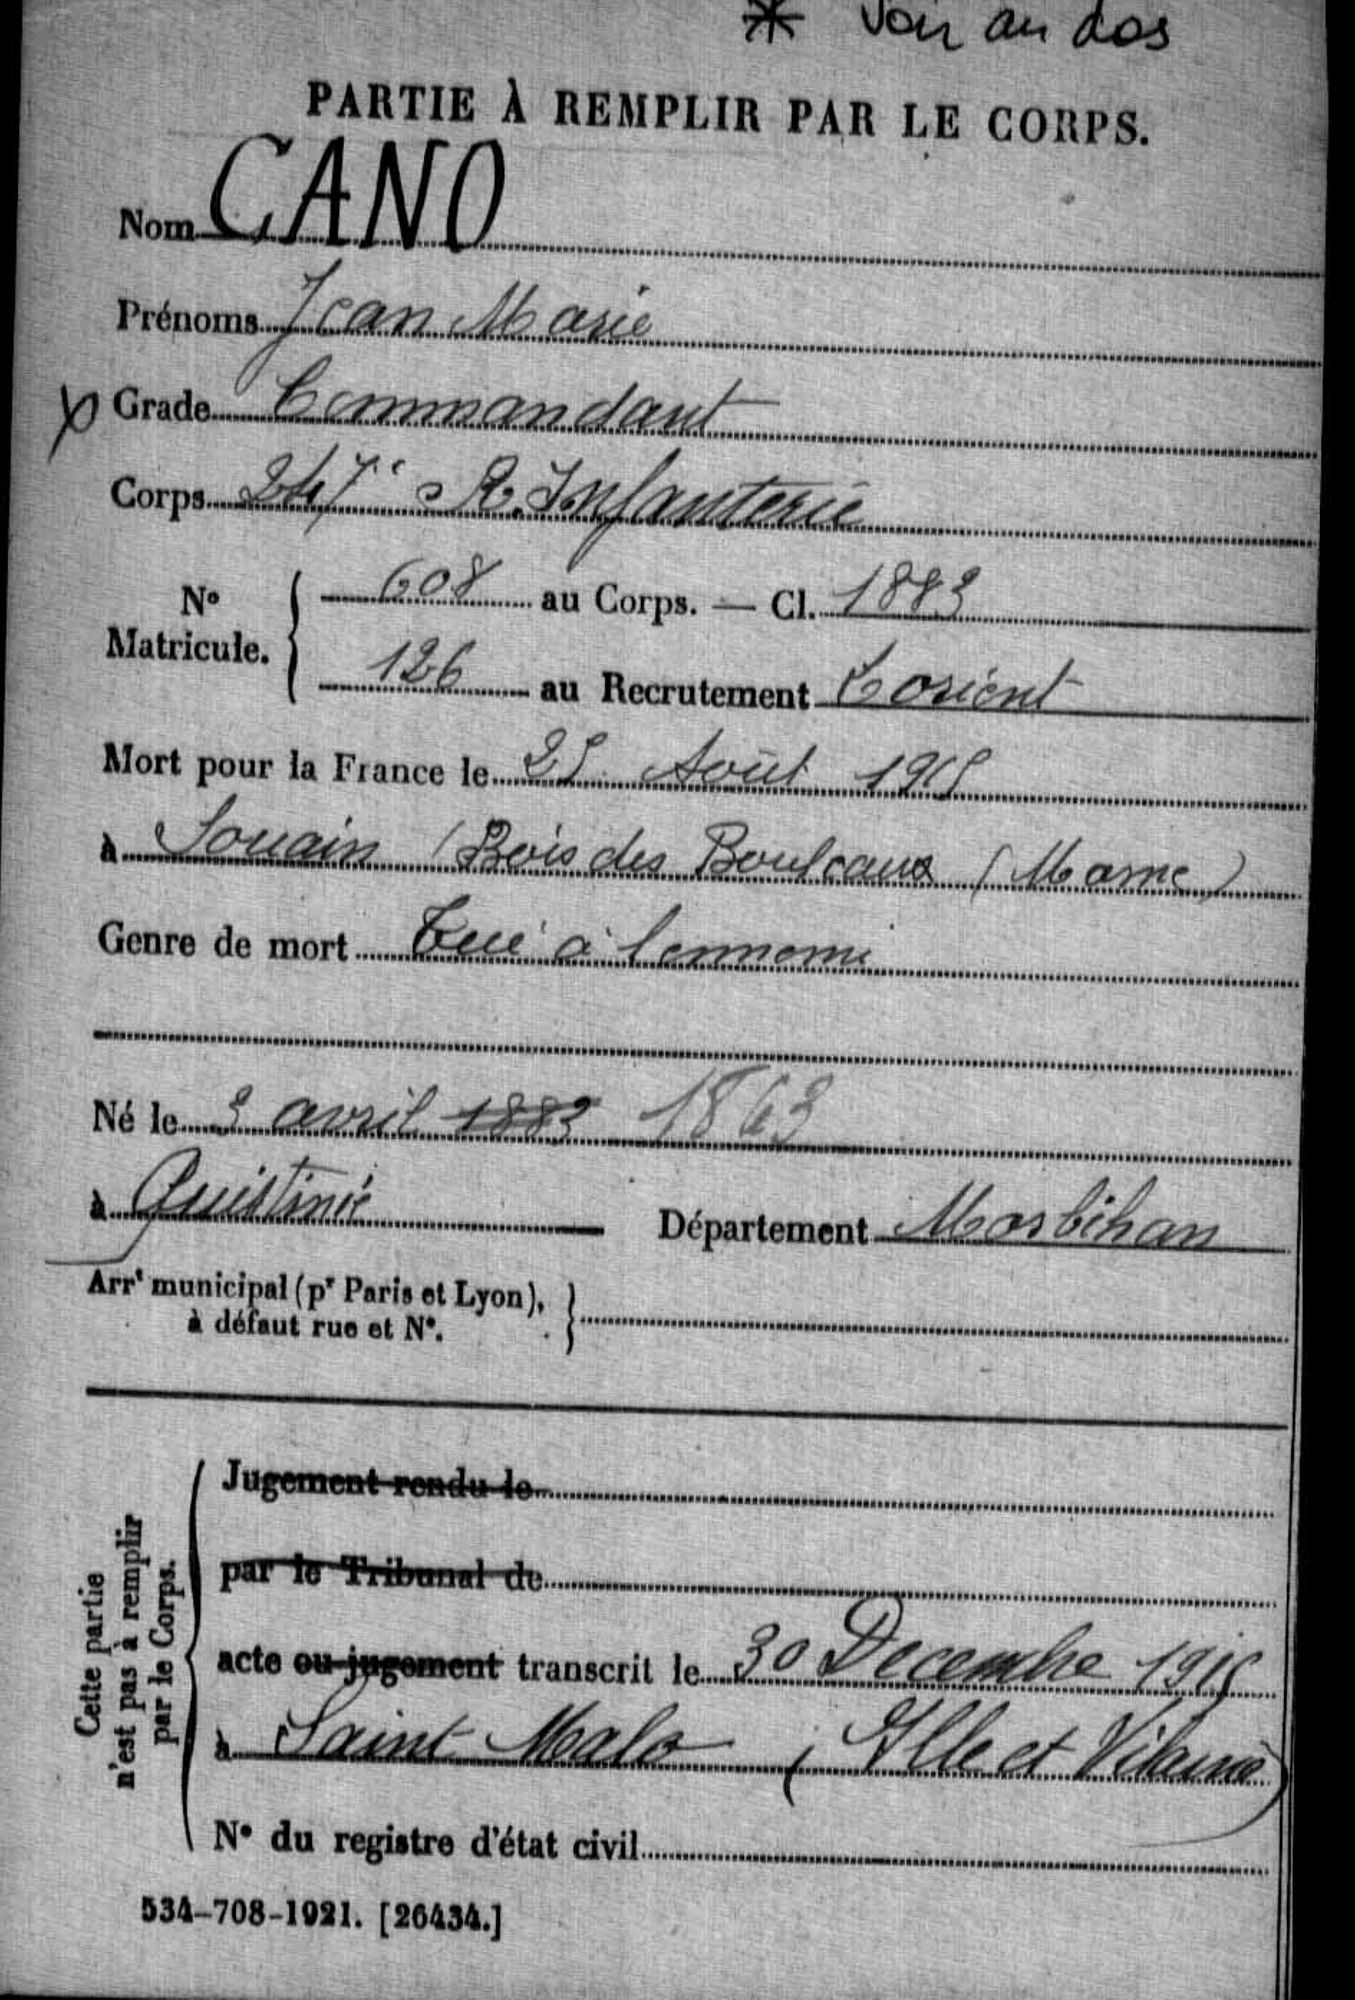 * Voir au dos
PARTIE À REMPLIR PAR LE CORPS.
Nom CANO
Prénoms Jean Marie
Grade Commandant
Corps 247e R. Infanterie
N° Matricule. { 608 au Corps. — Cl. 1883
126 au Recrutement Lorient
Mort pour la France le 25 Août 1915
à Souain (Bois des Bouleaux (Marne)
Genre de mort Tué à l'ennemi
Né le 3 avril 1883 1863
à Quistinic Département Morbihan
Arrt municipal (pr Paris et Lyon), à défaut rue et N°. }
Cette partie n'est pas à remplir par le Corps.
Jugement rendu le
par le Tribunal de
acte ou jugement transcrit le 30 Decembre 1915
à Saint Malo (Ille et Vilaine)
N° du registre d'état civil
534-708-1921. [26434.]